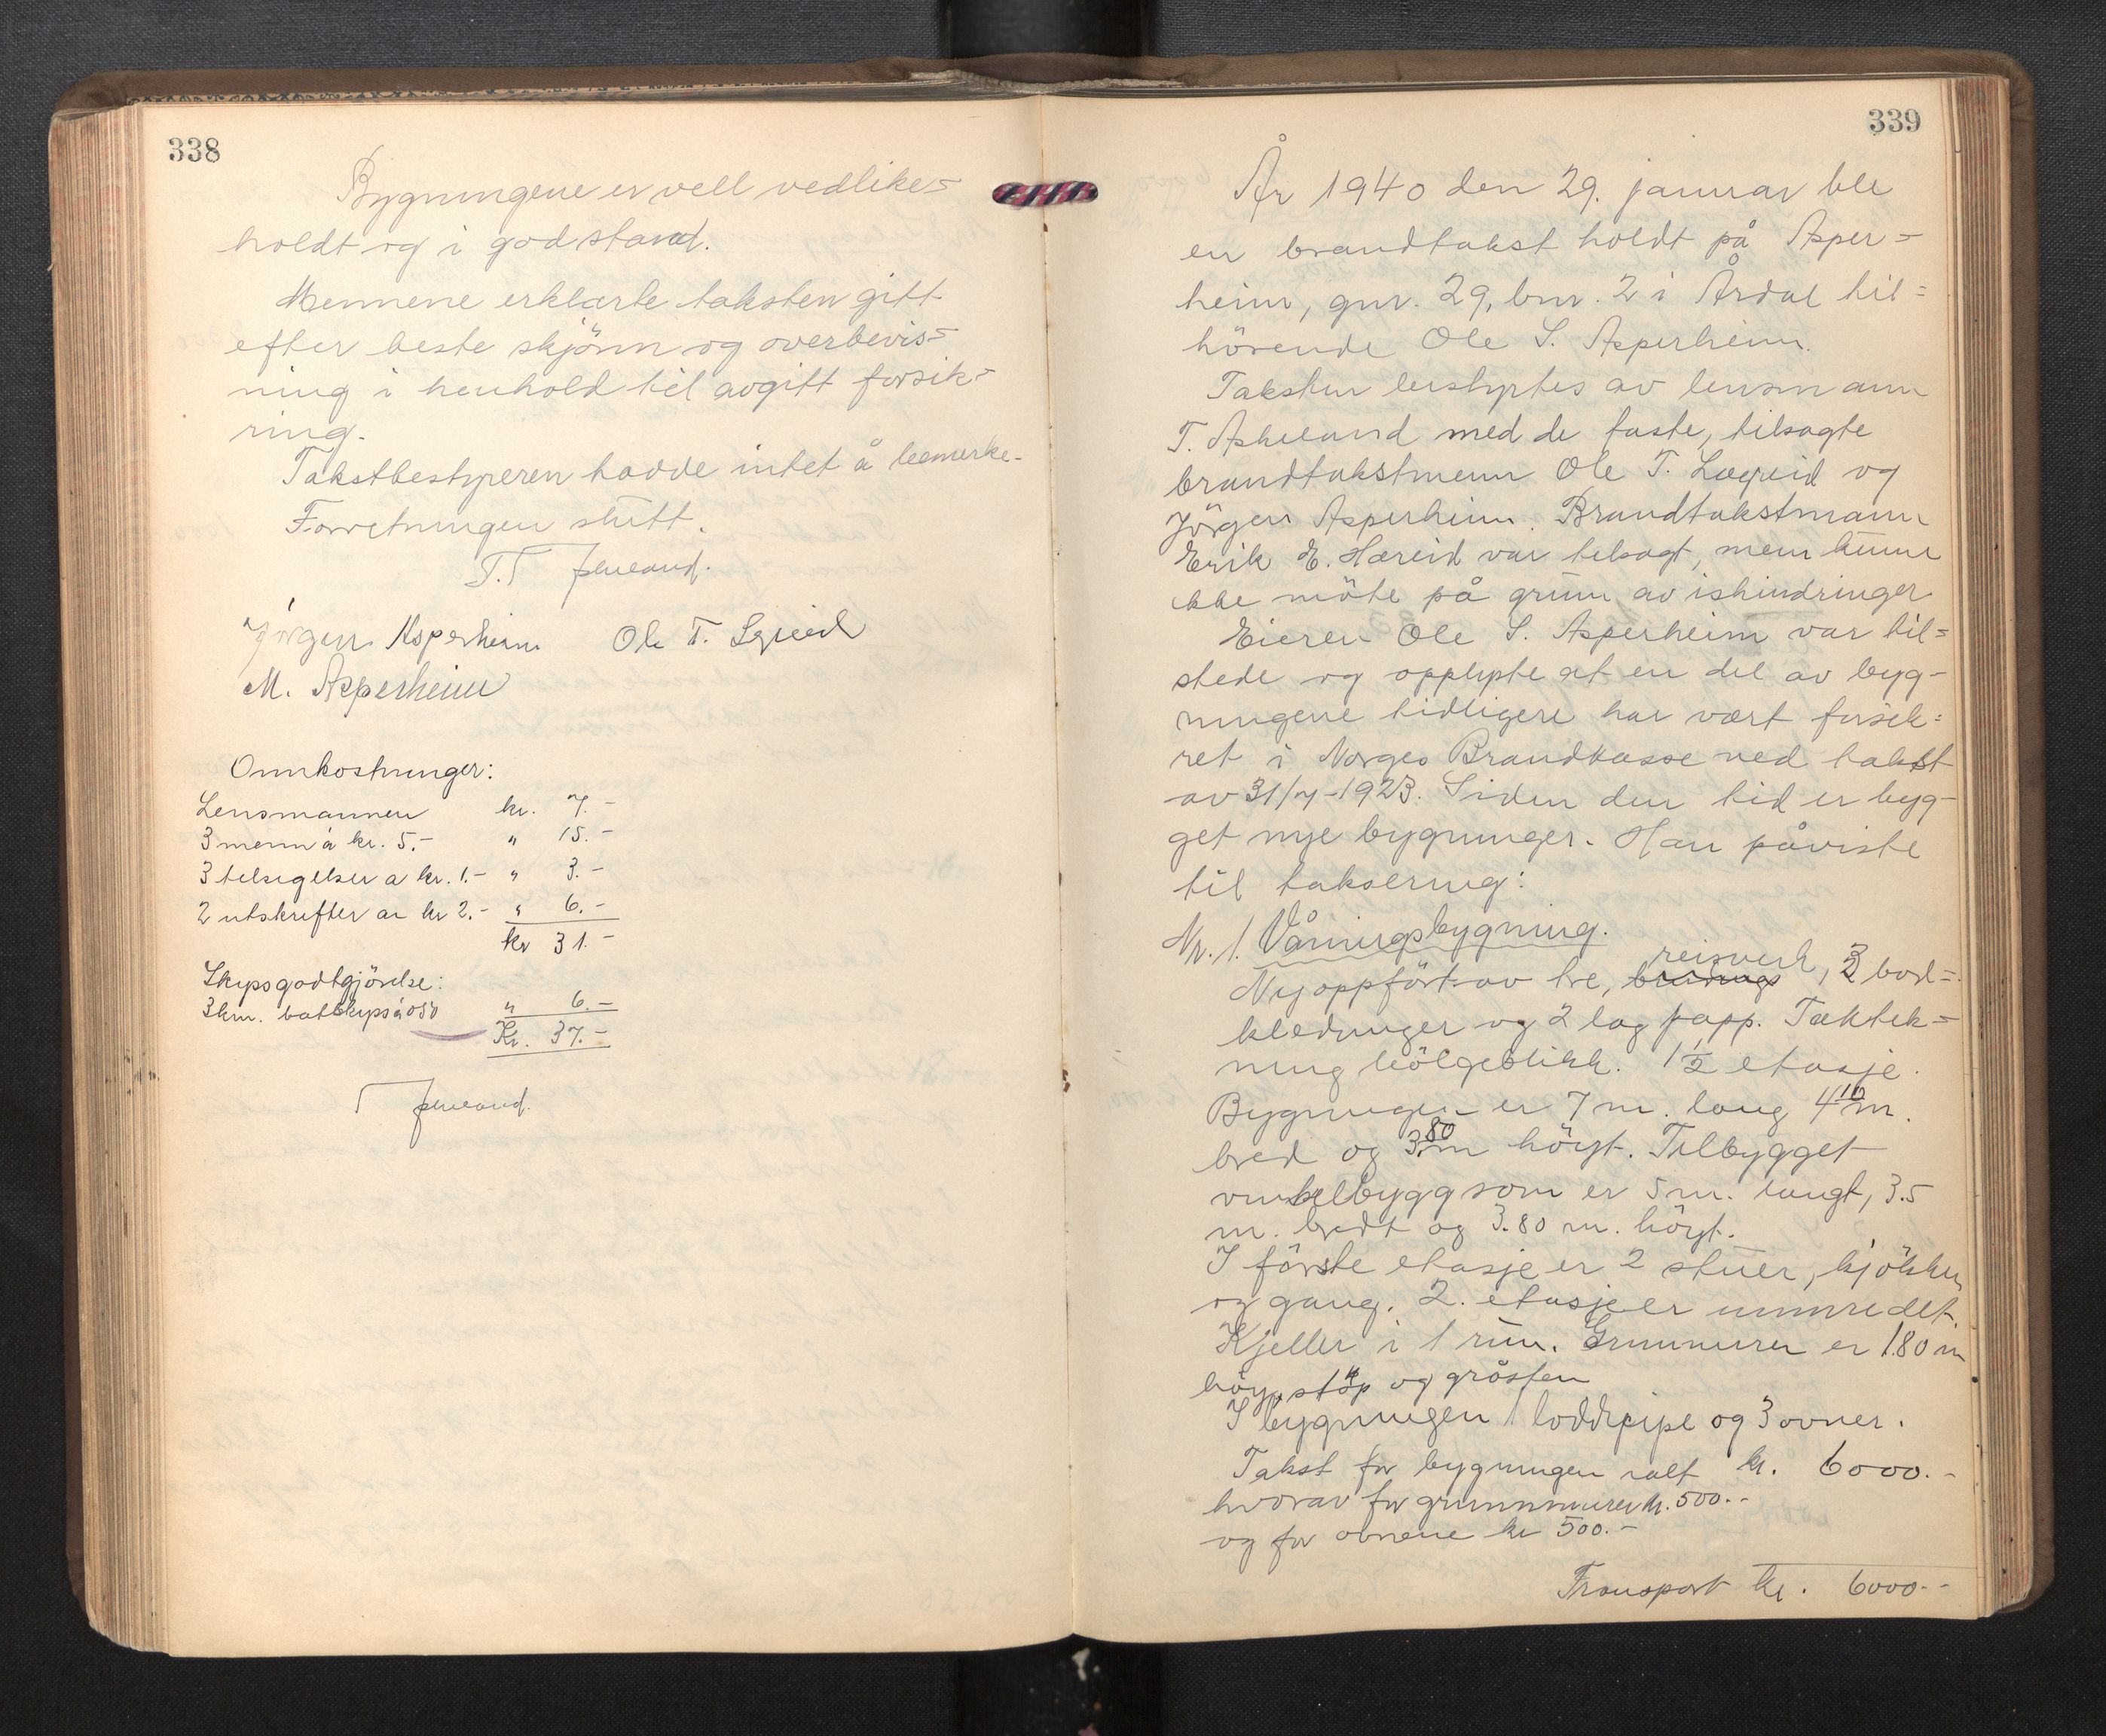 338
Bygningene er vell vedlike=
holdt og i god stand.
Mennene erklærte taksten gitt
efter beste skjönn og overbevis=
ning i henhold til avgitt forsik=
ring.
Takstbestyreren hadde intet å bemerke.
Forretningen slutt.
Jörgen Asperheim Ole T. Lægreid
M. Asperheim
Omkostninger:
Lensmannen kr. 7.-
3 menn á kr. 5.- " 15.-
3 tilsigelser a kr. 1.- " 3.-
2 utskrifter a kr 2.- " 6.-
kr 31.-
Skyssgodtgjörelse:
3 km. båtskyss á " 6.-
Kr. 37.-
339
År 1940 den 29. januar ble
en brandtakst holdt på Asper=
heim, gnr. 29, bnr. 2 i Årdal til=
hörende Ole S. Asperheim.
Taksten bestyrtes av lensmann
T. Askeland med de faste, tilsagte
brandtakstmenn Ole T. Lægreid og
Jörgen Asperheim. Brandtakstmann
Erik E. Hæreid var tilsagt, menn kunne
ikke möte på grunn av ishindringer
Eieren Ole S. Asperheim var til=
stede og opplyste at en del av byg-
ningene tidligere har vært forsik=
ret i Norges Brandkasse ved takst
av 31/7-1923. Siden den tid er byg-
get nye bygninger. Han påviste
til taksering:
Nr. 1. Våningsbygning.
Ny oppfört av tre, reisverk, 3 bord=
kledninger og 2 lag papp. Taktek=
ning bölgeblikk. 1 1/2 etasje.
Bygningen er 7 m. lang 4.10 m.
bred og 3.80 m höyt. Tilbygget
vinkelbygg som er 5 m. langt, 3.5
m. bredt og 3.80 m. höyt.
I förste etasje er 2 stuer, kjökken
og gang. 2. etasje er uinnredet.
Kjeller i 1 rum. Grunnmuren er 1.80 m
höy, stöp og gråsten
I bygningen 1 loddpipe og 3 ovner.
Takst for bygningen ialt kr. 6000.-
hvorav for grunnmuren kr. 500.-
og for ovnene kr 500.-
Transport kr. 6000.-